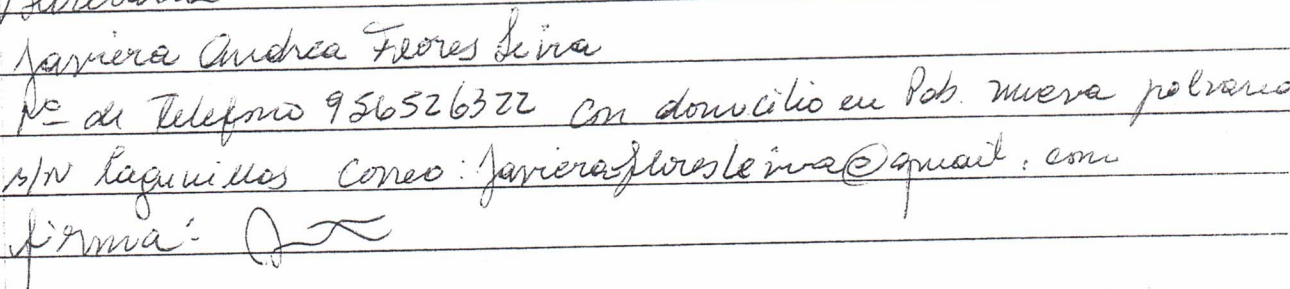 Javiera Andrea Flores Leiva
Nº de Telefono 956526322 con domicilio en Pob. nueva polvareo
s/N lagunillas Correo: Javierafloresleiva@gmail.com
firma: